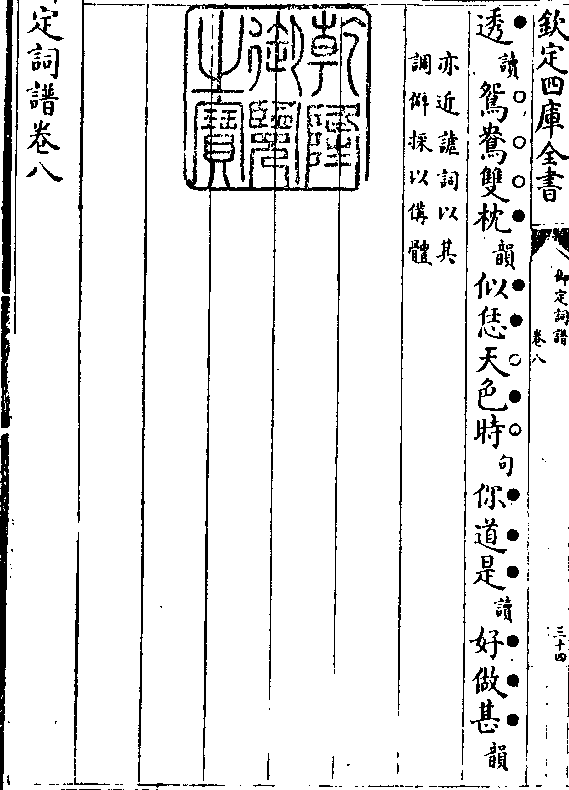 欽定四庫全書
御定詞譜
卷八
三十四
透讀鴛鴦雙枕韻似恁天色時句你道是讀好做甚韻
亦近謔詞以其
調僻採以備體
乾隆
御覽
之寶
定詞譜卷八